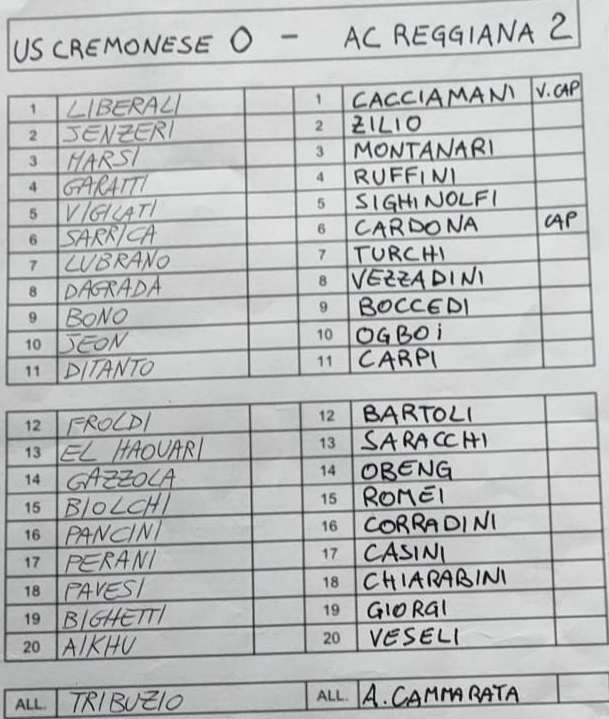 US CREMONESE 0 - AC REGGIANA 2
1 LIBERALI 1 CACCIAMANI V. CAP
2 SENZERI 2 ZILIO
3 MARSI 3 MONTANARI
4 GARATTI 4 RUFFINI
5 VIGILATI 5 SIGHINOLFI
6 SARRICA 6 CARDONA CAP
7 LUBRANO 7 TURCHI
8 DAGRADA 8 VEZZADINI
9 BONO 9 BOCCEDI
10 JEON 10 OGBOi
11 DITANTO 11 CARPI
12 FROLDI 12 BARTOLI
13 EL HAOUARI 13 SARACCHI
14 GAZZOLA 14 OBENG
15 BIOLCHI 15 ROMEI
16 PANCINI 16 CORRADINI
17 PERANI 17 CASINI
18 PAVESI 18 CHIARABINI
19 BIGHETTI 19 GIORGI
20 AIKHU 20 VESELI
ALL. TRIBUZIO ALL. A. CAMMARATA